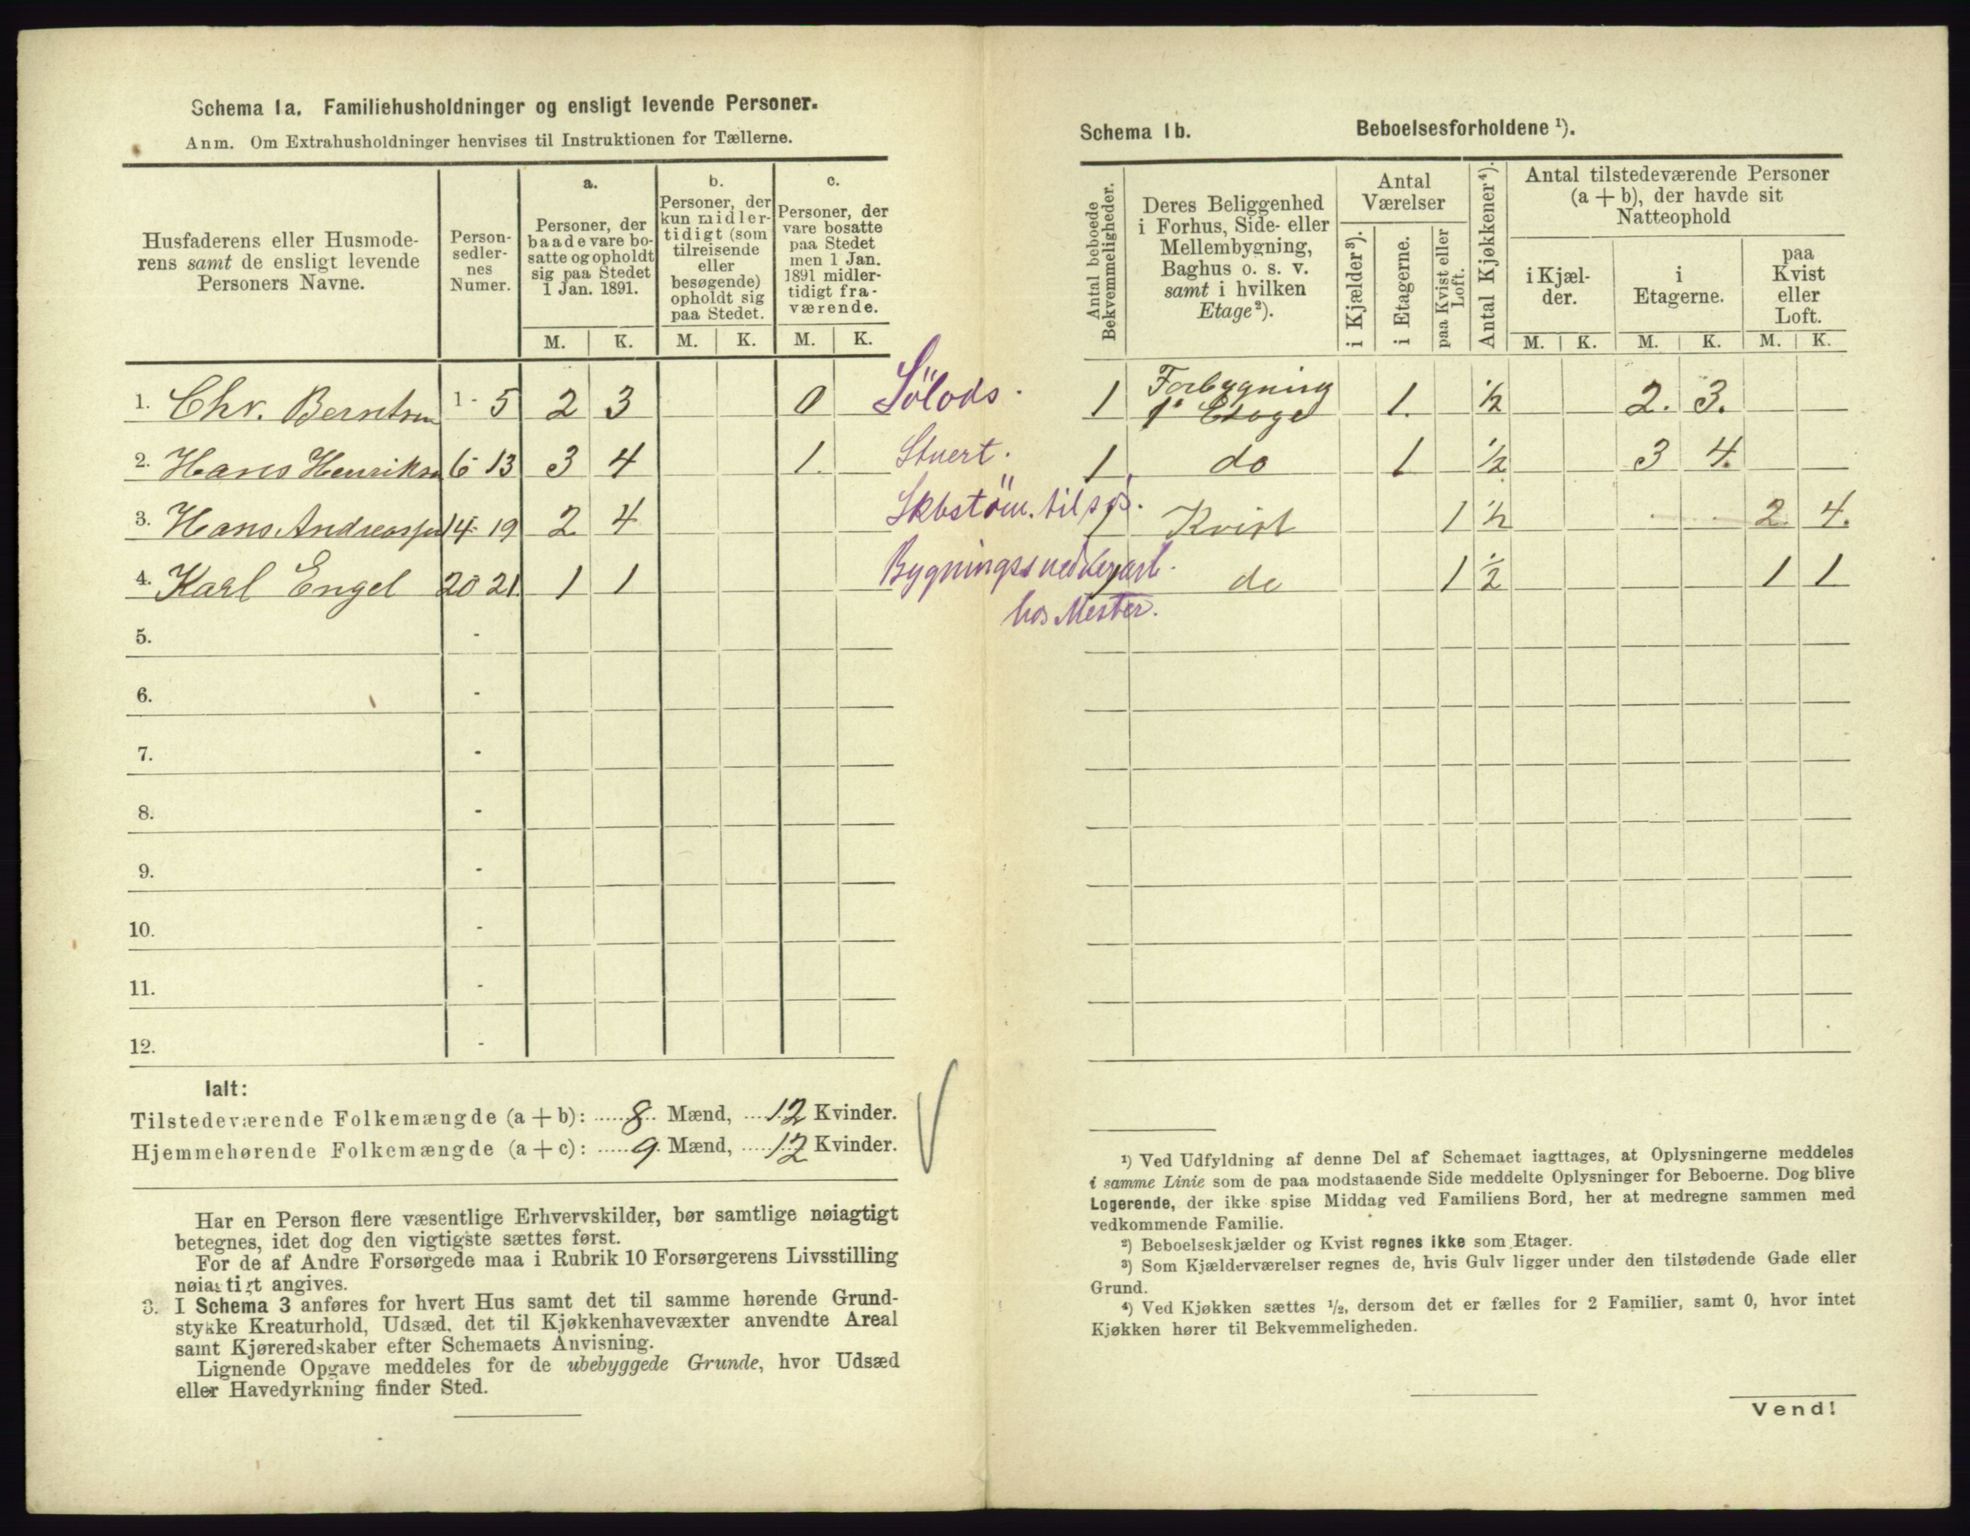 Schema 1a. Familiehusholdninger og ensligt levende Personer.
Anm. Om Extrahusholdninger henvises til Instruktionen for Tællerne.
Husfaderens eller Husmode-
rens samt de ensligt levende
Personers Navne.
Person-
sedler-
nes
Numer.
a.
Personer, der
baade vare bo-
satte og opholdt
sig paa Stedet
1 Jan. 1891.
b.
Personer, der
kun midler-
tidigt (som
tilreisende
eller
besøgende)
opholdt sig
paa Stedet.
c.
Personer, der
vare bosatte
paa Stedet
men 1 Jan.
1891 midler-
tidigt fra-
værende.
M. K. M. K. M. K.
1. Chr. Berntsen 1 - 5 2 3 0 Sölods.
2. Hans Henriksen 6 - 13 3 4 1. Stuert.
3. Hans Andreassen 14 - 19 2 4 Skbstöm. tilsös.
4. Karl Engel 20 21 1 1 Bygningssnedkerarb.
hos Mester.
5. -
6. -
7. -
8. -
9. -
10. -
11. -
12. -
Ialt:
Tilstedeværende Folkemængde (a + b): 8 Mænd, 12 Kvinder.
Hjemmehørende Folkemængde (a + c): 9 Mænd, 12 Kvinder.
Har en Person flere væsentlige Erhvervskilder, bør samtlige nøiagtigt
betegnes, idet dog den vigtigste sættes først.
For de af Andre Forsørgede maa i Rubrik 10 Forsørgerens Livsstilling
nøiagtigt angives.
3. I Schema 3 anføres for hvert Hus samt det til samme hørende Grund-
stykke Kreaturhold, Udsæd, det til Kjøkkenhavevæxter anvendte Areal
samt Kjøreredskaber efter Schemaets Anvisning.
Lignende Opgave meddeles for de ubebyggede Grunde, hvor Udsæd
eller Havedyrkning finder Sted.
Schema 1b. Beboelsesforholdene ¹).
Antal beboede
Bekvemmeligheder.
Deres Beliggenhed
i Forhus, Side- eller
Mellembygning,
Baghus o. s. v.
samt i hvilken
Etage²).
Antal
Værelser
i Kjælder³).
i Etagerne.
paa Kvist eller
Loft.
Antal Kjøkkener⁴).
Antal tilstedeværende Personer
(a + b), der havde sit
Natteophold
i Kjæl-
der.
i
Etagerne.
paa
Kvist
eller
Loft.
M. K. M. K. M. K.
1 Forbygning
1ᵉ Etage 1. ½ 2. 3.
1 do 1 ½ 3 4.
1 Kvist 1 ½ 2. 4.
1 do 1 ½ 1 1
¹) Ved Udfyldning af denne Del af Schemaet iagttages, at Oplysningerne meddeles
i samme Linie som de paa modstaaende Side meddelte Oplysninger for Beboerne. Dog blive
Logerende, der ikke spise Middag ved Familiens Bord, her at medregne sammen med
vedkommende Familie.
²) Beboelseskjælder og Kvist regnes ikke som Etager.
³) Som Kjælderværelser regnes de, hvis Gulv ligger under den tilstødende Gade eller
Grund.
⁴) Ved Kjøkken sættes ½, dersom det er fælles for 2 Familier, samt 0, hvor intet
Kjøkken hører til Bekvemmeligheden.
Vend!